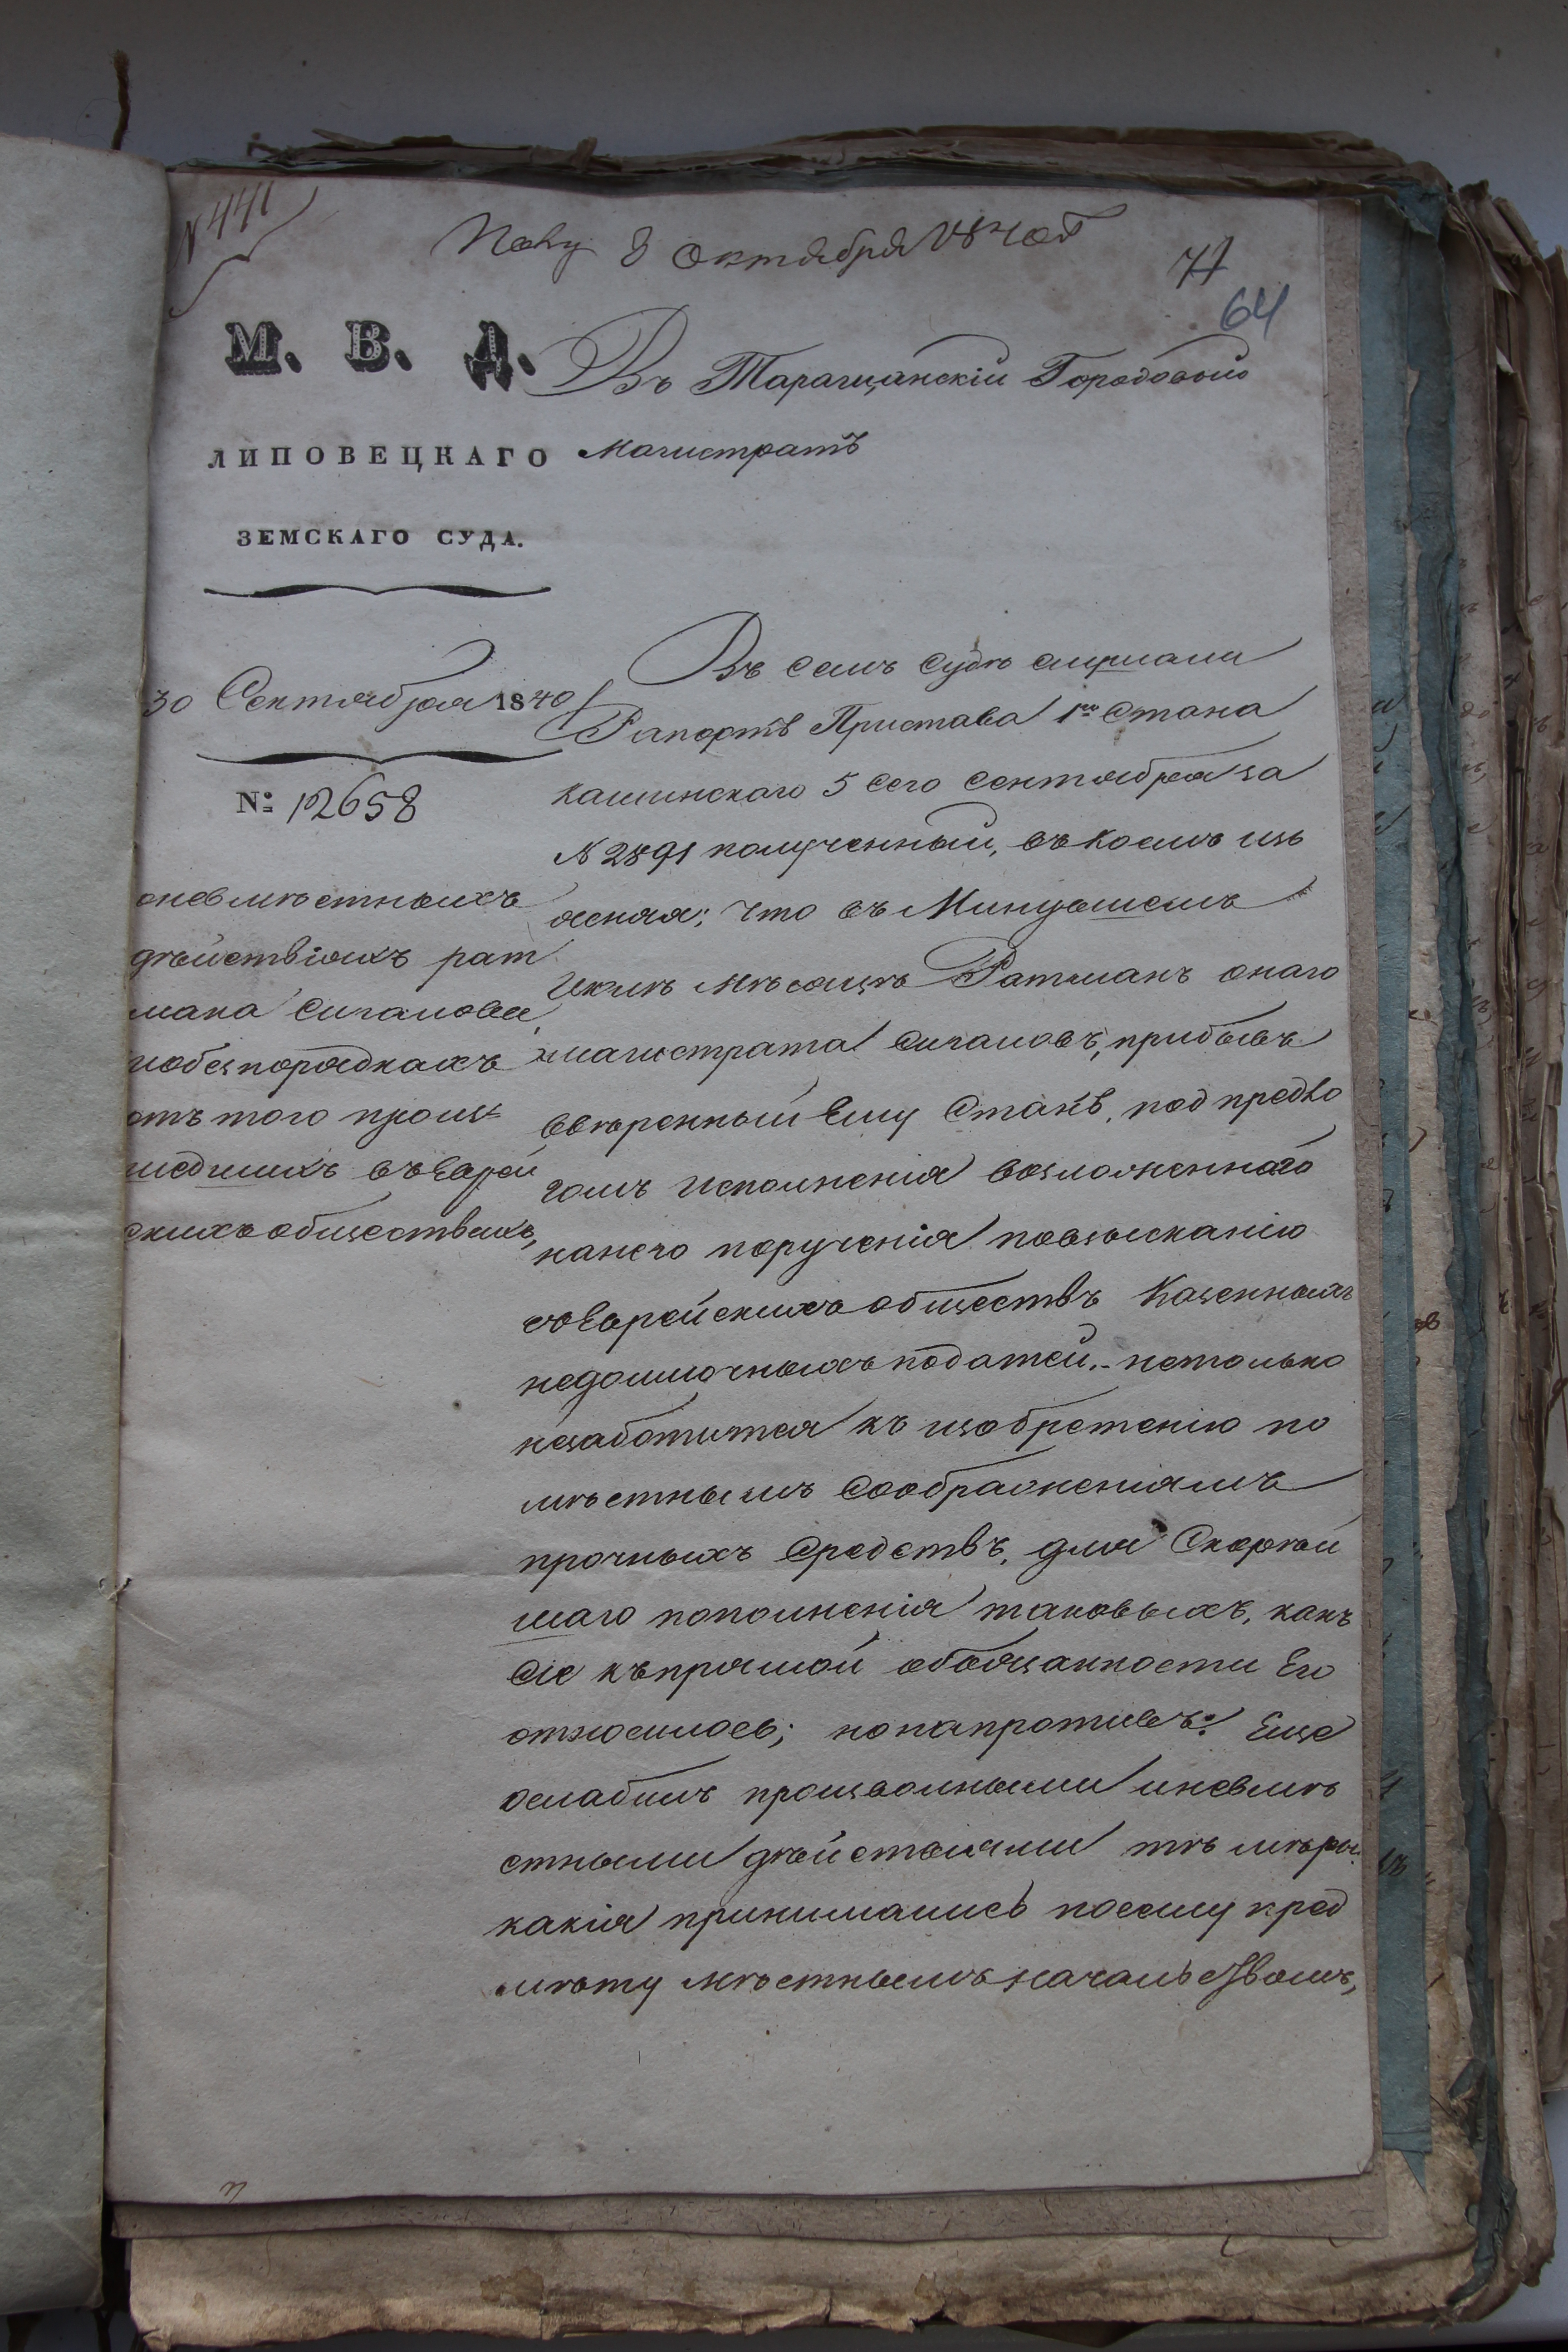 N 441
Полу 8 Октября 1840 г
71
64
М. В. Д.
ЛИПОВЕЦКАГО
ЗЕМСКАГО СУДА.
30 Сентября 1840
№: 12658
оневместныхъ
дѣйствіяхъ рат
мана Сигалова
иобезпорядкахъ
отъ того произ
шедшихъ въ Еврей
скихъ обществахъ,
Въ Таращанскій Городовый
Магистратъ
Въ семъ Судѣ слушали
Рапортъ Пристава 1го Стана
5 сего Сентября за
N 2891 полученный, въ коемъ изъ
ясняя; что въ Минувшемъ
Іюлѣ Мѣсяцѣ Ратманъ онаго
магистрата Сигаловъ, прибывъ
ввѣренный Ему Станъ, под предло
гомъ исполненія возложеннаго
нанего порученія повзысканію
съ Еврейскихъ обществъ Казенныхъ
недоимочныхъ податей. нетолько
незаботится къ изобретенію по
мѣстнымъ Соображеніямъ
прочныхъ средствъ, для Скорѣй
шаго пополненія таковыхъ, какъ
сіе къ прямой обобязанности Его
относилось; но напротивъ: Еще
ослабилъ произволными иневмѣ
стными дѣйствіями тѣ мѣры
какія принимались посему пред
мѣту мѣстнымъ начальствомъ,